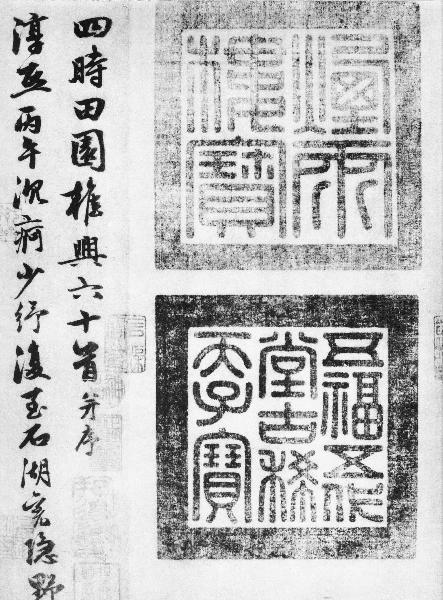 五福五代
堂古稀
天子寶
四時田園雜興六十首并序
淳熙丙午沉疴少紓復至石湖舊隱野